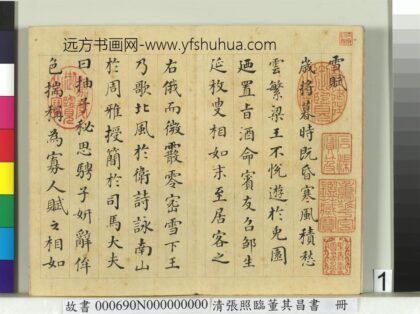 远方书画网-www.yfshuhua.com
雪賦
歲將暮時既昏寒風積愁
雲繁梁王不悅遊於兔園
迺置旨酒命賓友召鄒生
延枚叟相如末至居客之
右俄而微霰零密雪下王
乃歌北風於衛詩詠南山
於周雅授簡於司馬大夫
曰抽子秘思騁子妍辭侔
色揣稱為寡人賦之相如
1
故書 000690N000000000 清張照臨董其昌書 冊